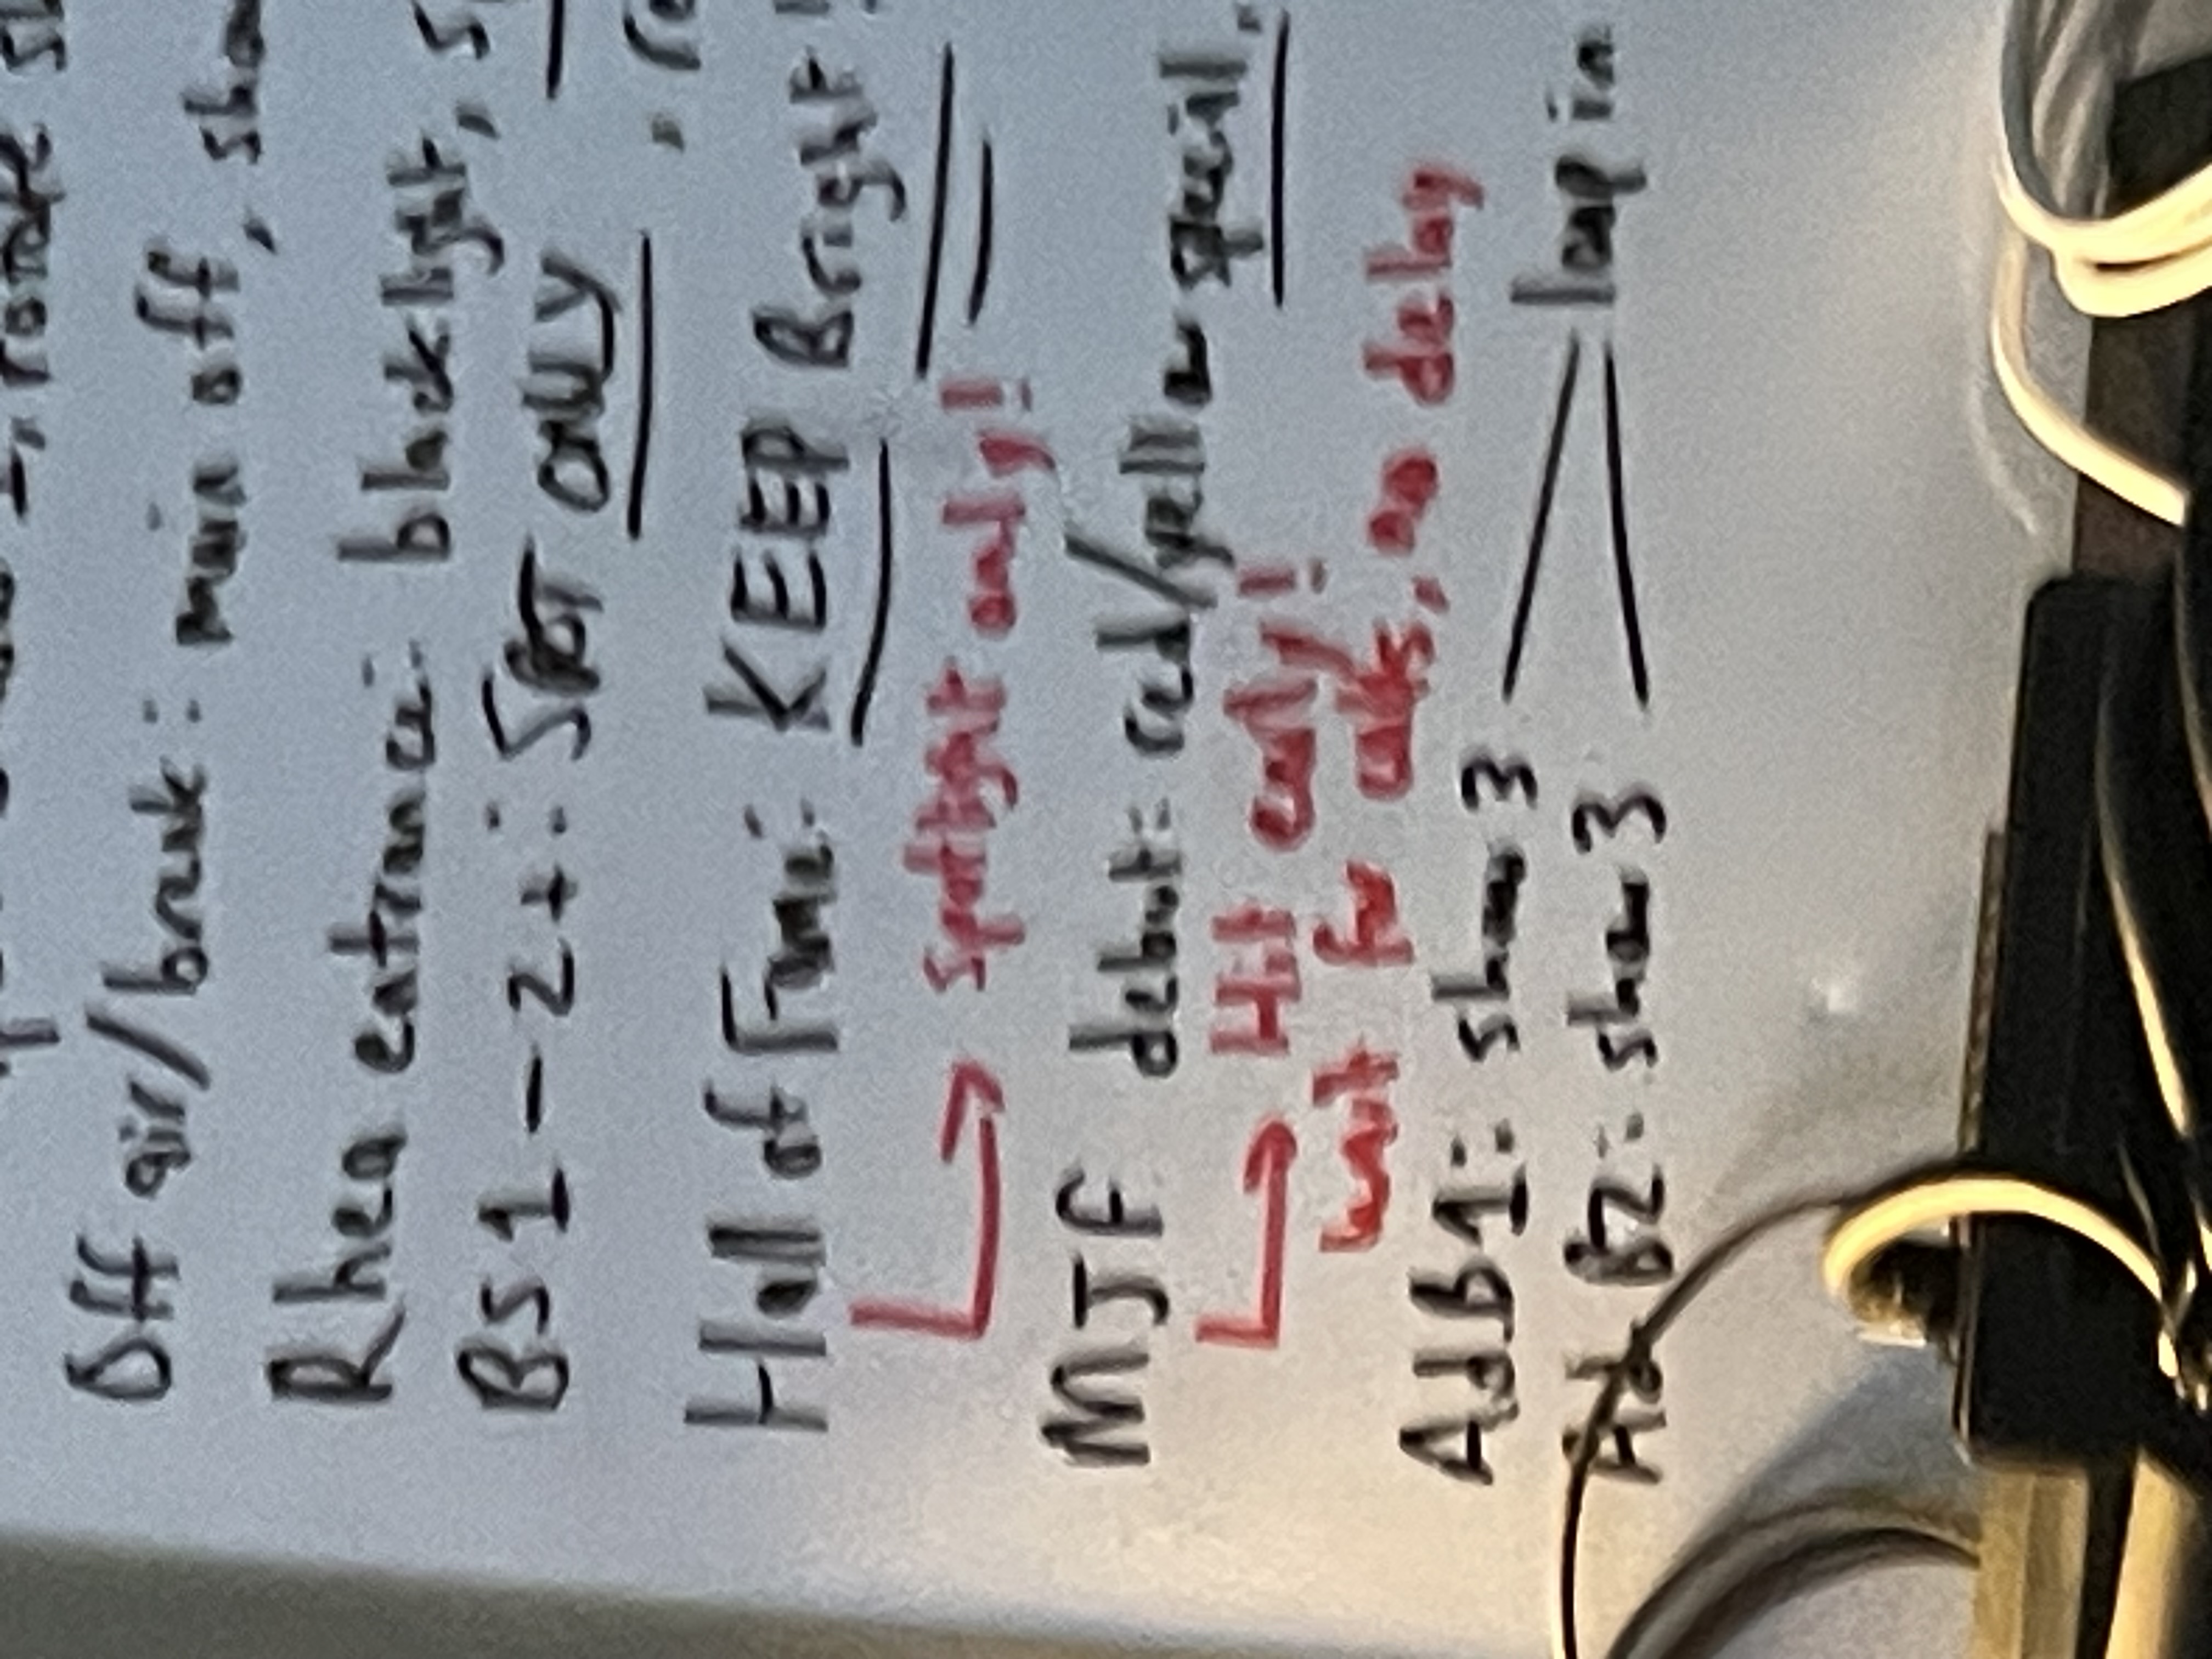 rotate
Off air/break: main off, sho
Rhea entrance: blacklight, s
BS 1-2+: SPOT ONLY , re
Hall of Fame: KEEP Bright
spotlight only!
MJF debut: red/yellow special,
Hit early!
wait for cue, no delay
Ad B1: show 3
loop in
Ad B2: show 3